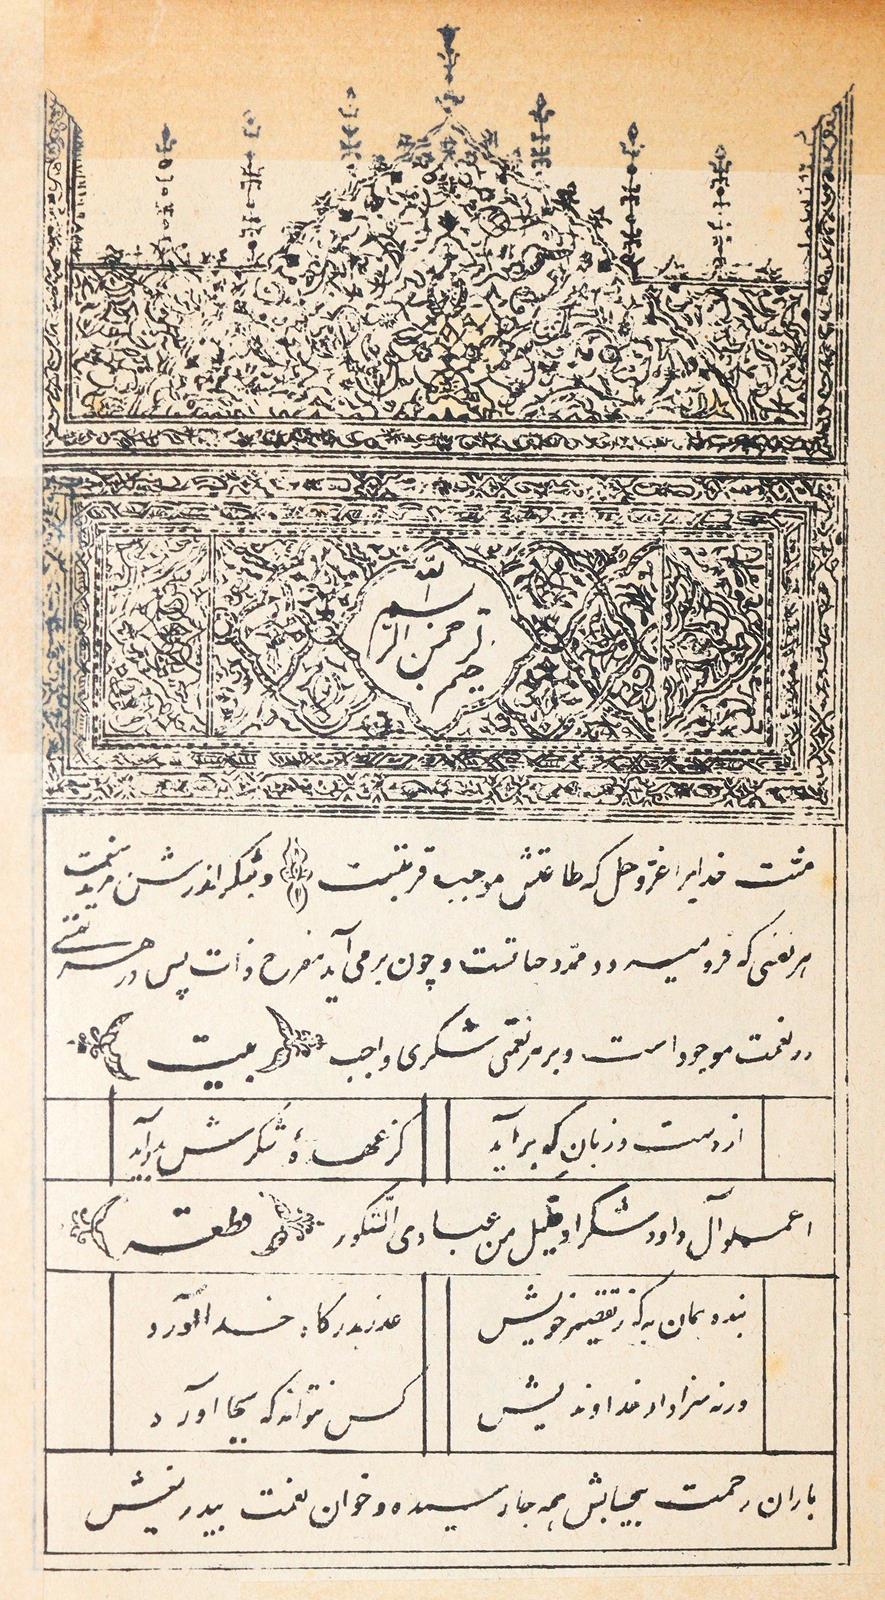 بسم الله الرحمن الرحیم
منت خدایرا عزوجل که طاعتش موجب قربتست و بشکر اندرش مزید نعمت
هر نفسی که فرو میرود ممد حیاتست و چون بر می آید مفرح ذات پس در هر نفسی
دو نعمت موجود است و بر هر نعمتی شکری واجب بیت
از دست و زبان که بر آید کز عهدهٔ شکرش بدر آید
اعملوا آل داود شکرا و قلیل من عبادی الشکور قطعه
بنده همان به که ز تقصیر خویش عذر بدرگاه خدا آورد
ورنه سزاوار خداوندیش کس نتواند که بجا آورد
باران رحمت بیحسابش همه جا رسیده و خوان نعمت بیدریغش